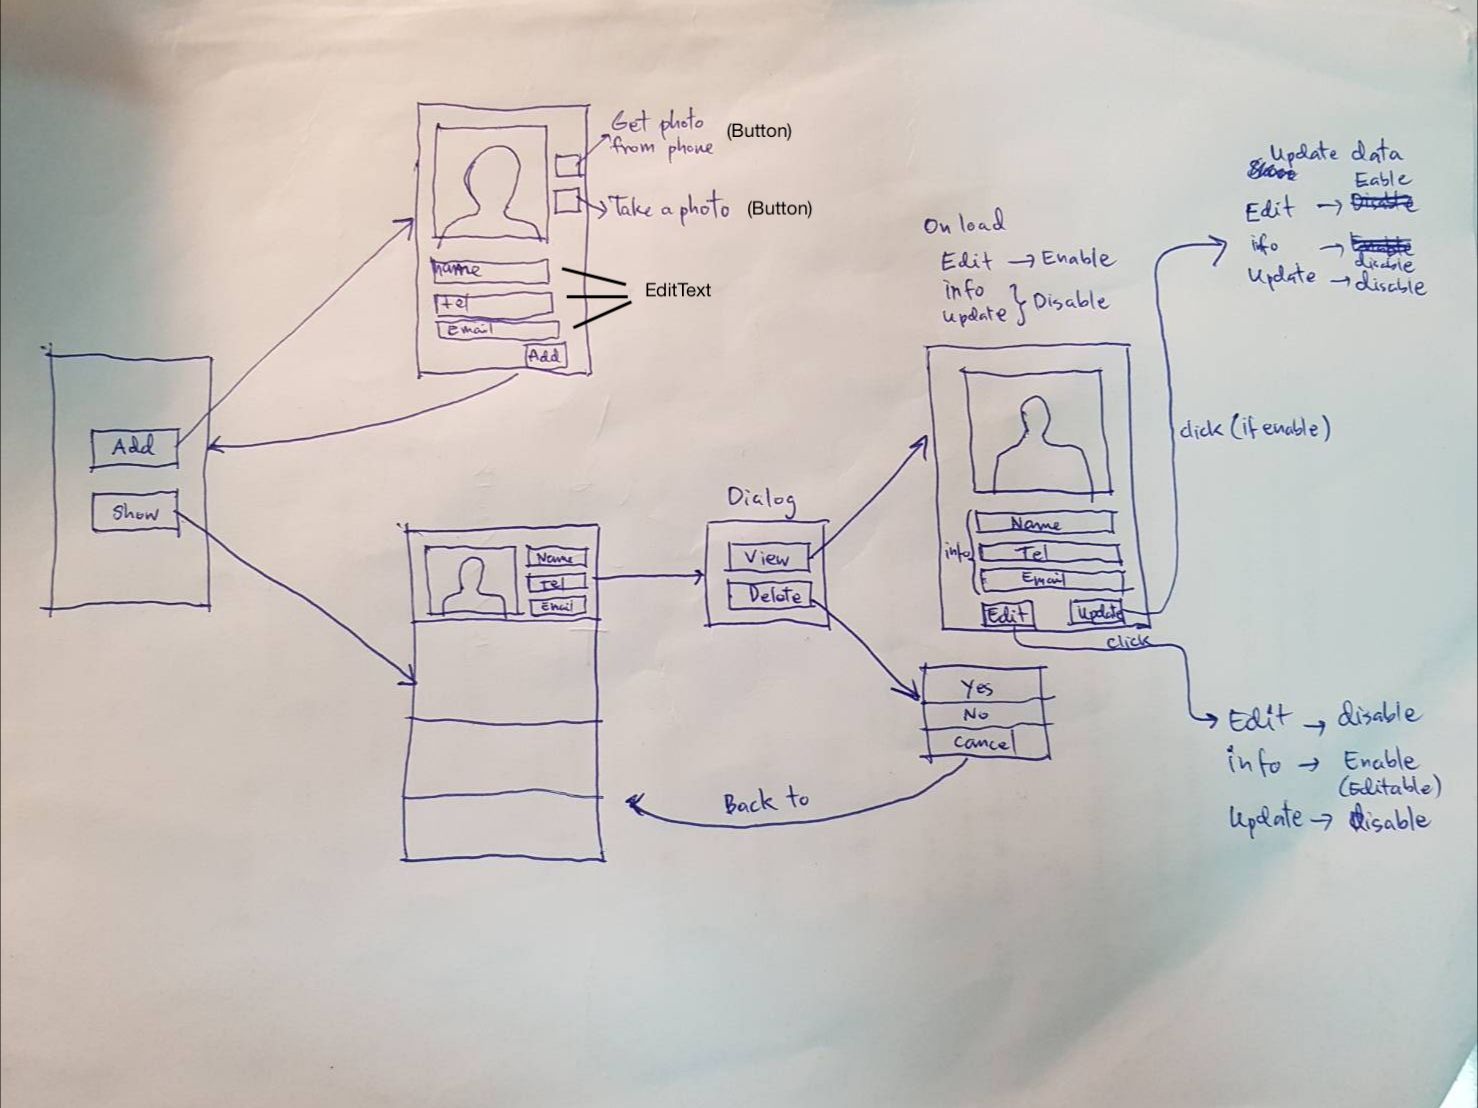 Get photo (Button)
from phone
Take a photo (Button)
name
Tel
Email
Add
EditText
Add
Show
Name
Tel
Email
Dialog
View
Delete
Yes
No
Cancel
Back to
On load
Edit → Enable
info
update } Disable
Name
info Tel
Email
Edit Update
click (if enable)
click
Update data
Eable
Edit →
info →
disable
Update → disable
Edit → disable
info → Enable
(Editable)
Update → disable